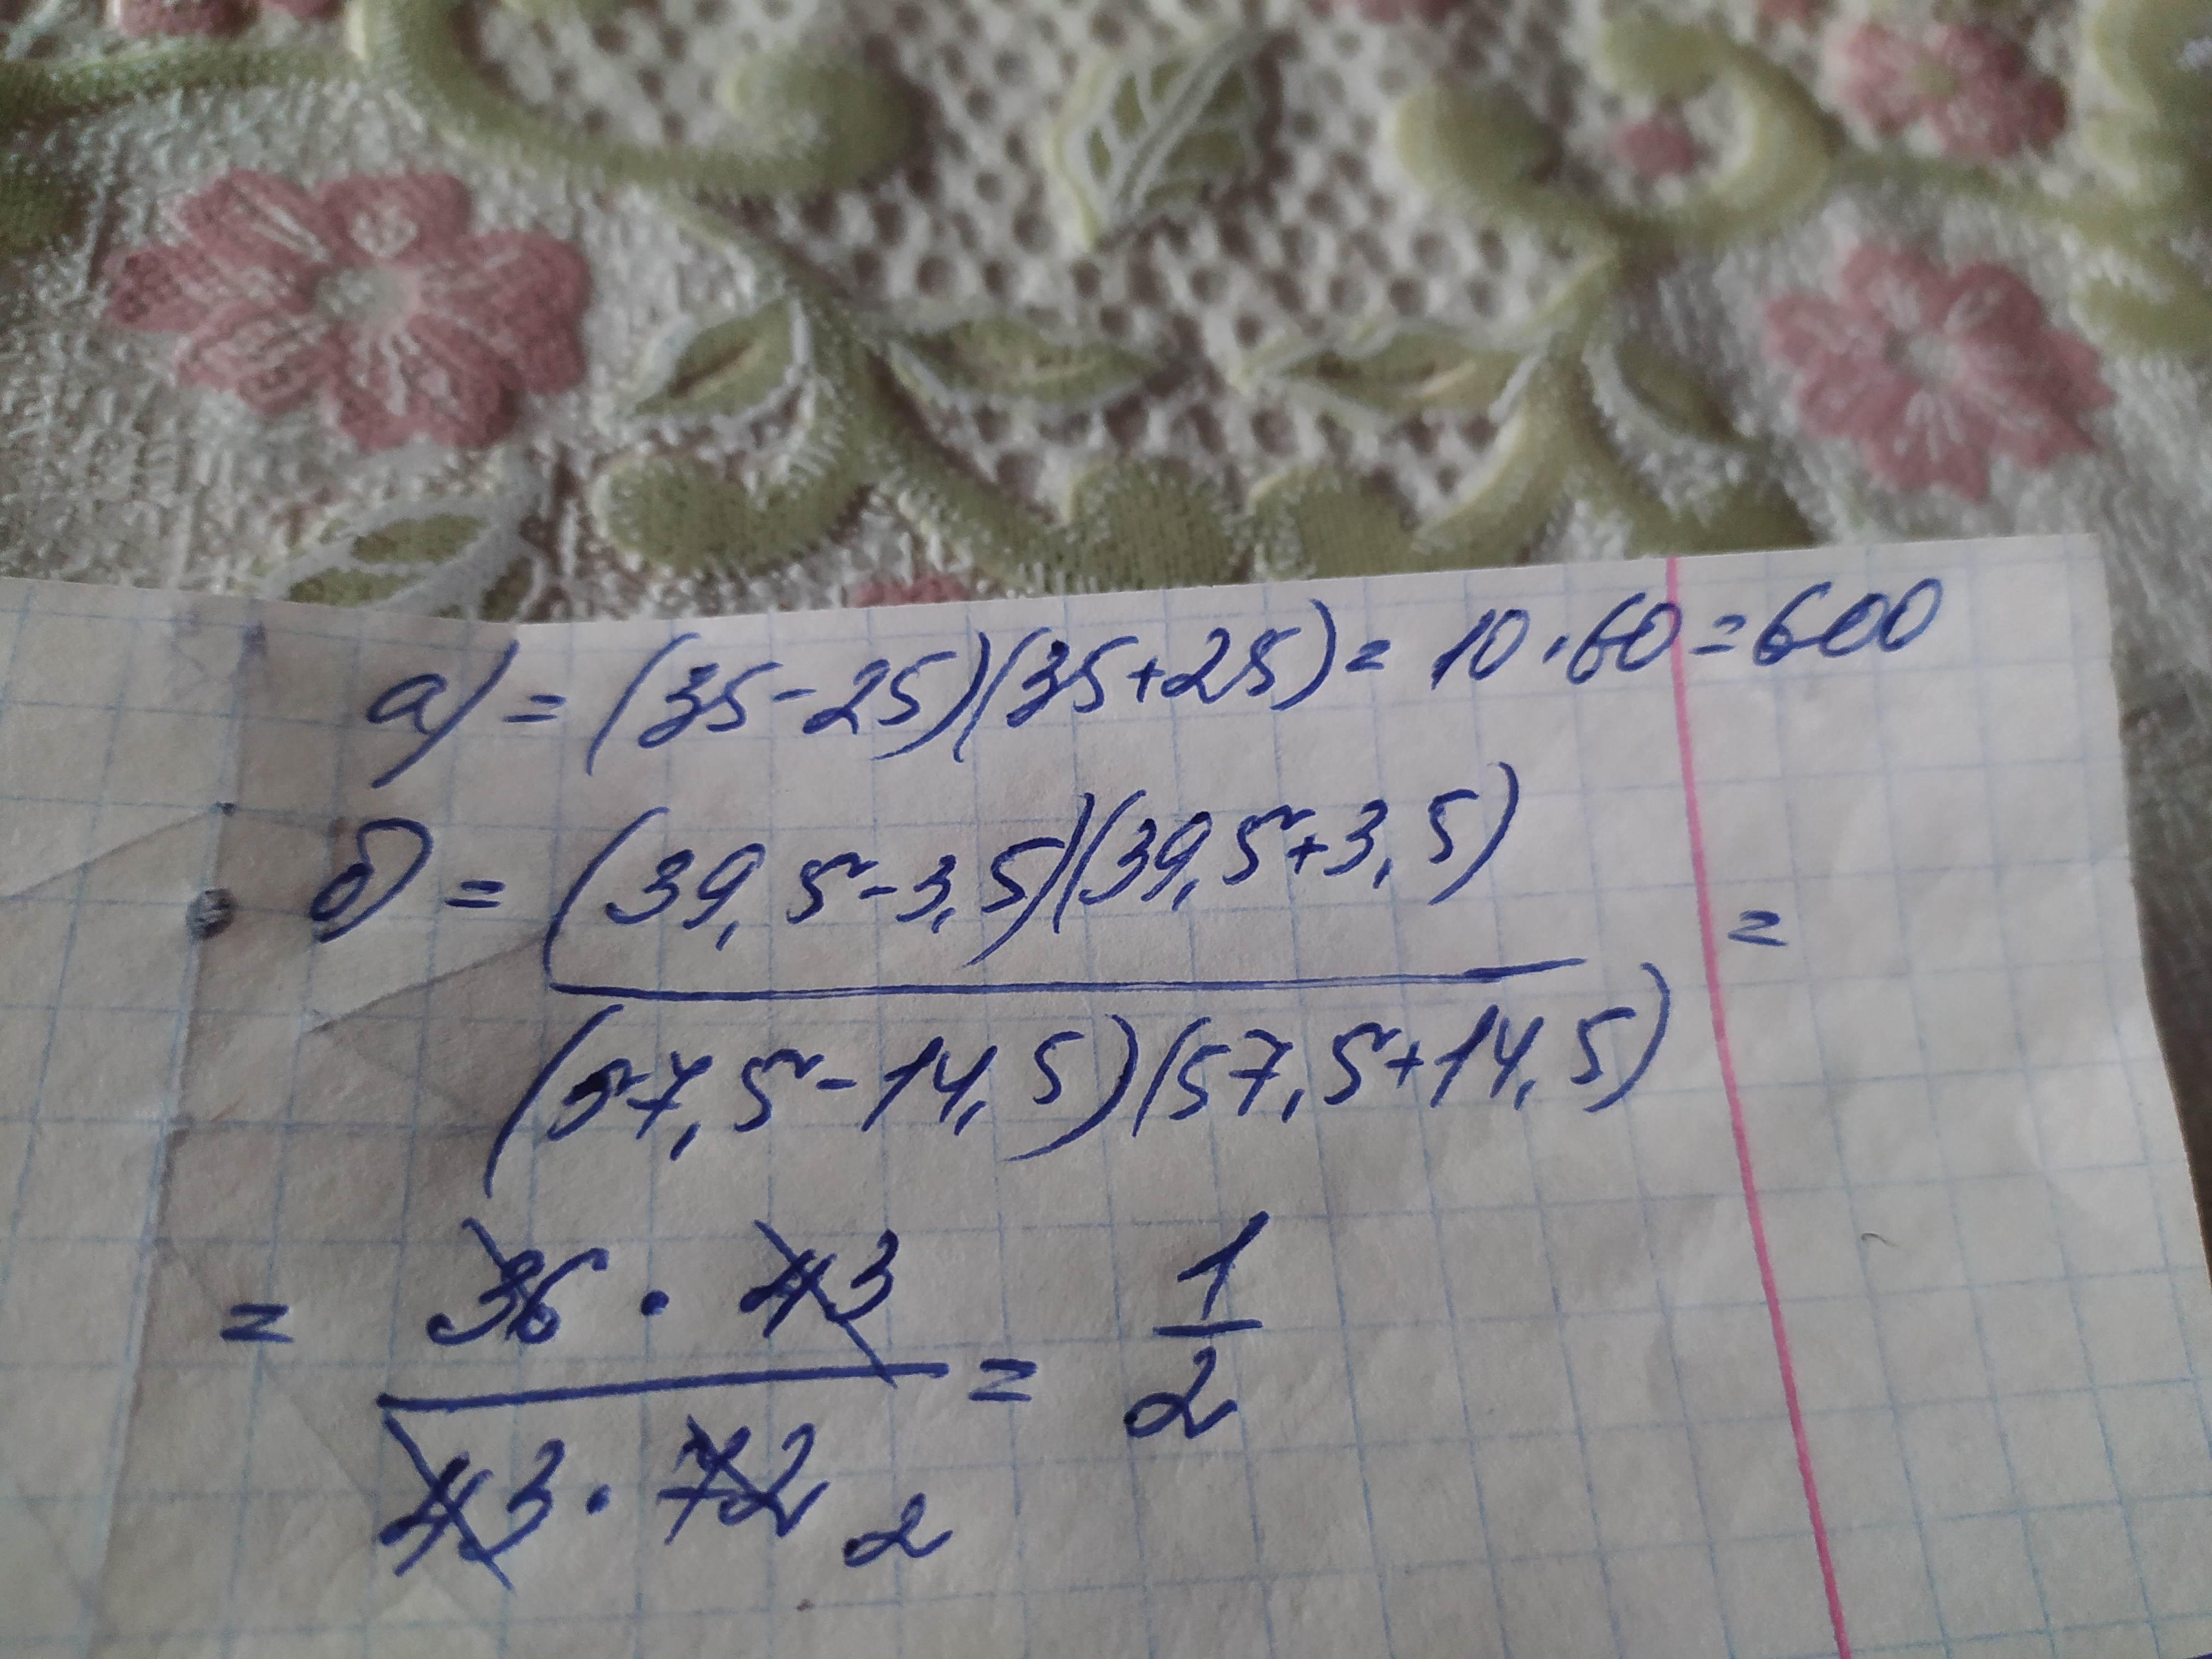 а) = (35-25)(35+25) = 10 · 60 = 600
б) = (39,5-3,5)(39,5+3,5) =
(57,5-14,5)(57,5+14,5)
= 36 · 43 = 1
43 · 72 2 2